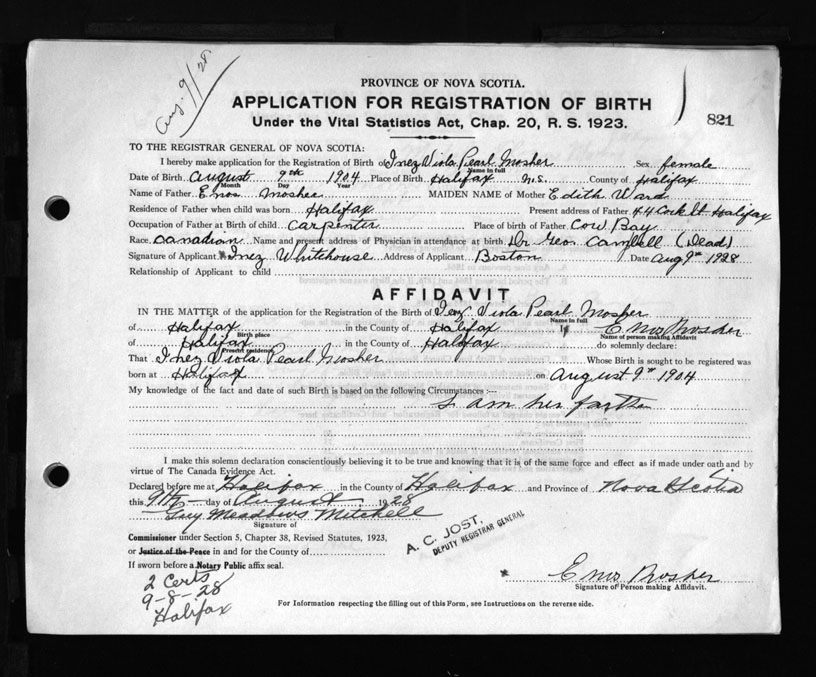 Aug. 9/28
PROVINCE OF NOVA SCOTIA.
APPLICATION FOR REGISTRATION OF BIRTH
Under the Vital Statistics Act, Chap. 20, R. S. 1923.
821
TO THE REGISTRAR GENERAL OF NOVA SCOTIA:
I hereby make application for the Registration of Birth of Inez Viola Pearl Mosher Sex female
Name in full
Date of Birth August 9th 1904 Place of Birth Halifax N.S. County of Halifax
Month Day Year
Name of Father Enos Mosher MAIDEN NAME of Mother Edith Ward
Residence of Father when child was born Halifax Present address of Father 44 Cork St Halifax
Occupation of Father at Birth of child Carpenter Place of birth of Father Cow Bay
Race Canadian Name and present address of Physician in attendance at birth Dr Geo Campbell (Dead)
Signature of Applicant Inez Whitehouse Address of Applicant Boston Date Aug 9th 1928
Relationship of Applicant to child
AFFIDAVIT
IN THE MATTER of the application for the Registration of the Birth of Inez Viola Pearl Mosher
Name in full
of Halifax in the County of Halifax I, Enos Mosher
Birth place Name of person making Affidavit
of Halifax in the County of Halifax do solemnly declare:
Present residence
That Inez Viola Pearl Mosher Whose Birth is sought to be registered was
born at Halifax on August 9th 1904
My knowledge of the fact and date of such Birth is based on the following Circumstances :—
I am her father
I make this solemn declaration conscientiously believing it to be true and knowing that it is of the same force and effect as if made under oath and by
virtue of The Canada Evidence Act.
Declared before me at Halifax in the County of Halifax and Province of Nova Scotia
this 9th day of August 1928
Guy Meadows Mitchell
Signature of
Commissioner under Section 5, Chapter 38, Revised Statutes, 1923,
or Justice of the Peace in and for the County of
If sworn before a Notary Public affix seal.
A. C. JOST,
DEPUTY REGISTRAR GENERAL
Enos Mosher
Signature of Person making Affidavit.
2 Certs
9-8-28
Halifax
For Information respecting the filling out of this Form, see Instructions on the reverse side.